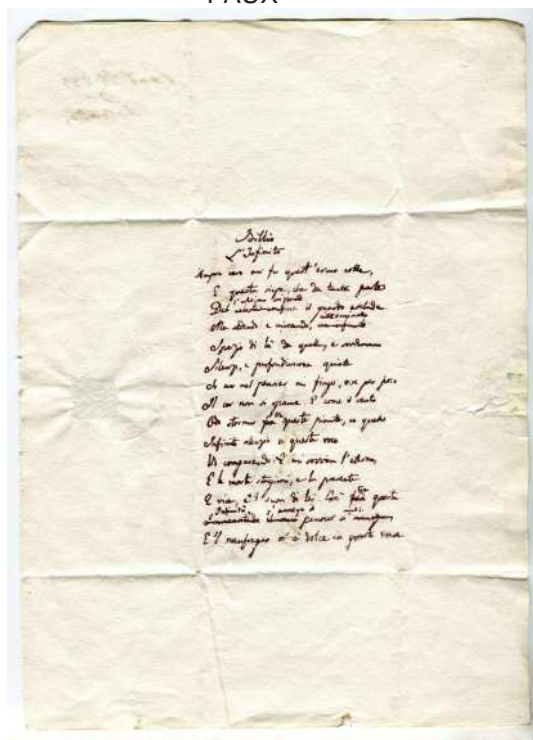 FAUX
Idillio
L'Infinito
Sempre caro mi fu quest'ermo colle,
E questa siepe, che da tanta parte
Del celeste confine il guardo esclude
Ma sedend e mirando, un infinito
Spazio di là da quella, e sovrumani
Silenzi, e profondissima quiete
Io nel pensier mi fingo, ove per poco
Il cor non si spaura. E come il vento
Odo stormir fra queste piante, io quello
Infinito silenzio a questa voce
Vo comparando: E mi sovvien l'eterno,
E le morte stagioni, e la presente
E viva, e 'l suon di lei. Così fra questa
Infinità s'annega il
Immensitade il mio pensier
E 'l naufragar m'è dolce in questo mare